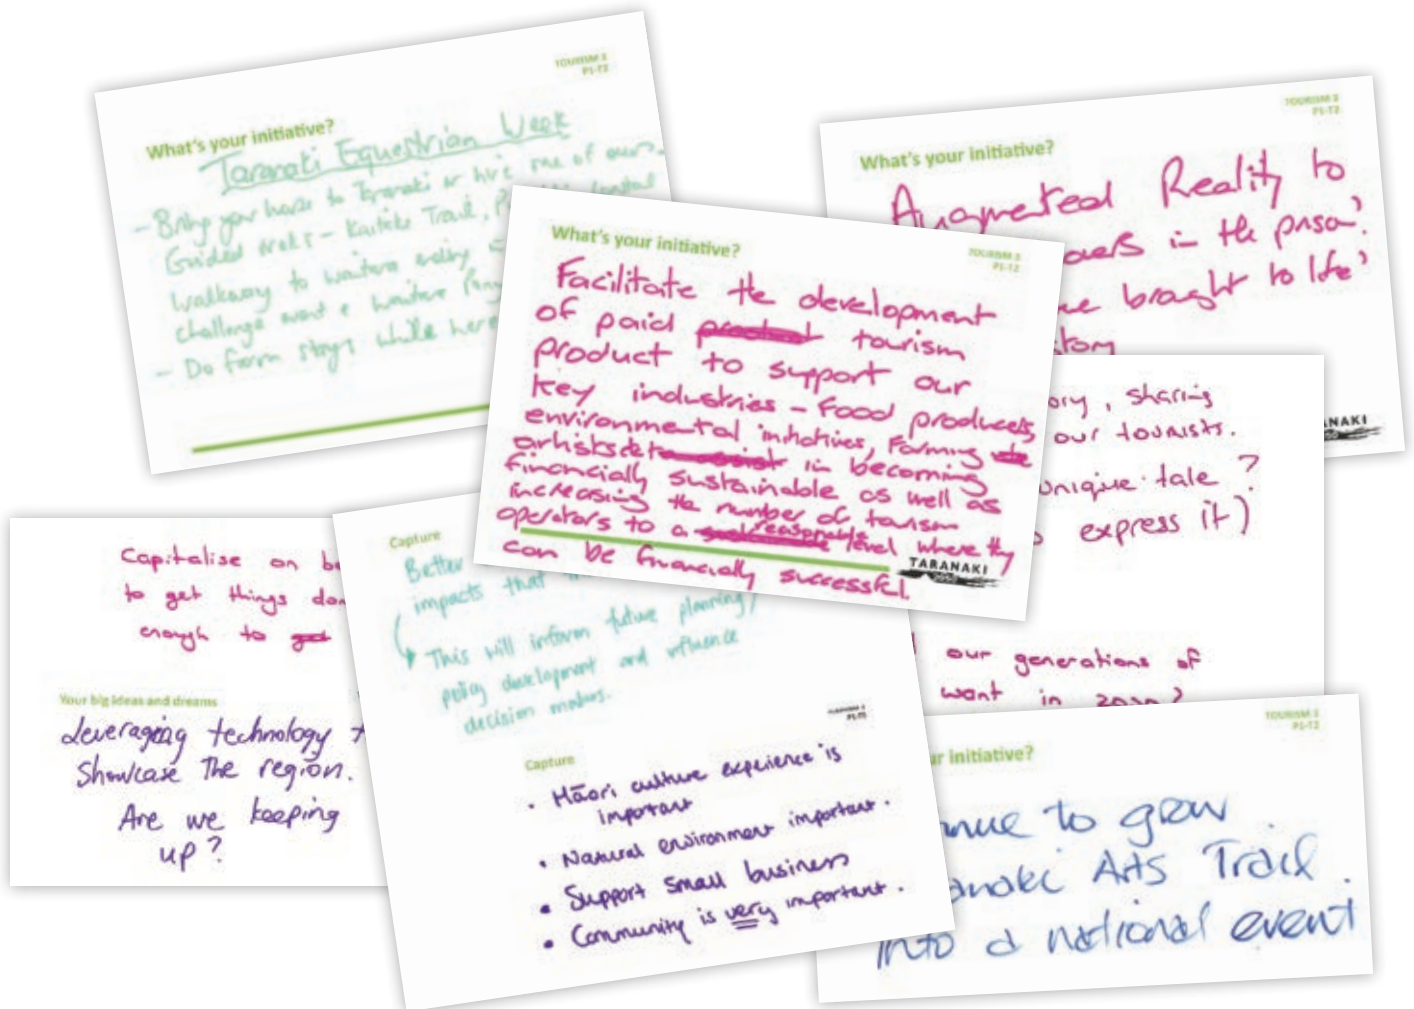 TOURISM 3
P1-T2
What's your initiative?
Taranaki Equestrian Week
- Bring your horse to Taranaki or hire one of ours.
Guided treks - Kaitake Trail,
walkway to Waitara
challenge event & Waitara Pony
- Do farm stays while here
TOURISM 3
P1-T2
What's your initiative?
Augmented Reality to
in the prison'.
brought to life'
What's your initiative?
TOURISM 3
P1-T2
Facilitate the development
of paid product tourism
product to support our
key industries - food producers,
environmental initiatives, farming
artists etc in becoming
financially sustainable as well as
increasing the number of tourism
operators to a reasonable level where they
can be financially successful.
TARANAKI
2050
ory, sharing
our tourists.
unique tale?
express it)
our generations of
want in 2050?
ANAKI
Capitalise on be
to get things don
enough to get
Your big ideas and dreams
Leveraging technology t
Showcase the region.
Are we keeping
up?
Capture
Better
impacts that
This will inform future planning,
policy development and influence
decision makers.
Capture
• Māori culture experience is
important
• Natural environment important.
• Support small business
• Community is very important.
TOURISM 3
P1-T2
ur initiative?
nue to grow
anaki Arts Trail
into a national event.